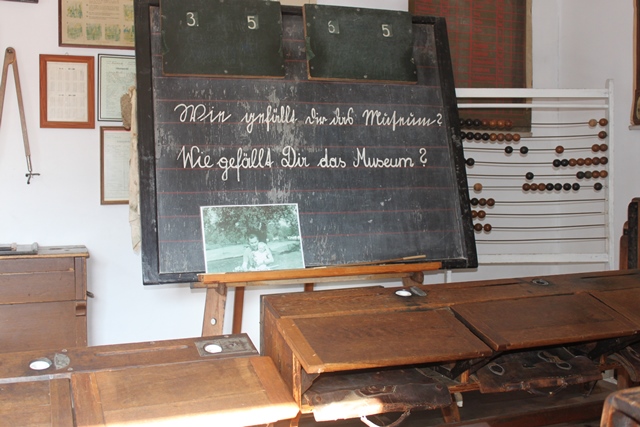 3 5 6 5
Wie gefällt dir das Museum?
Wie gefällt Dir das Museum?